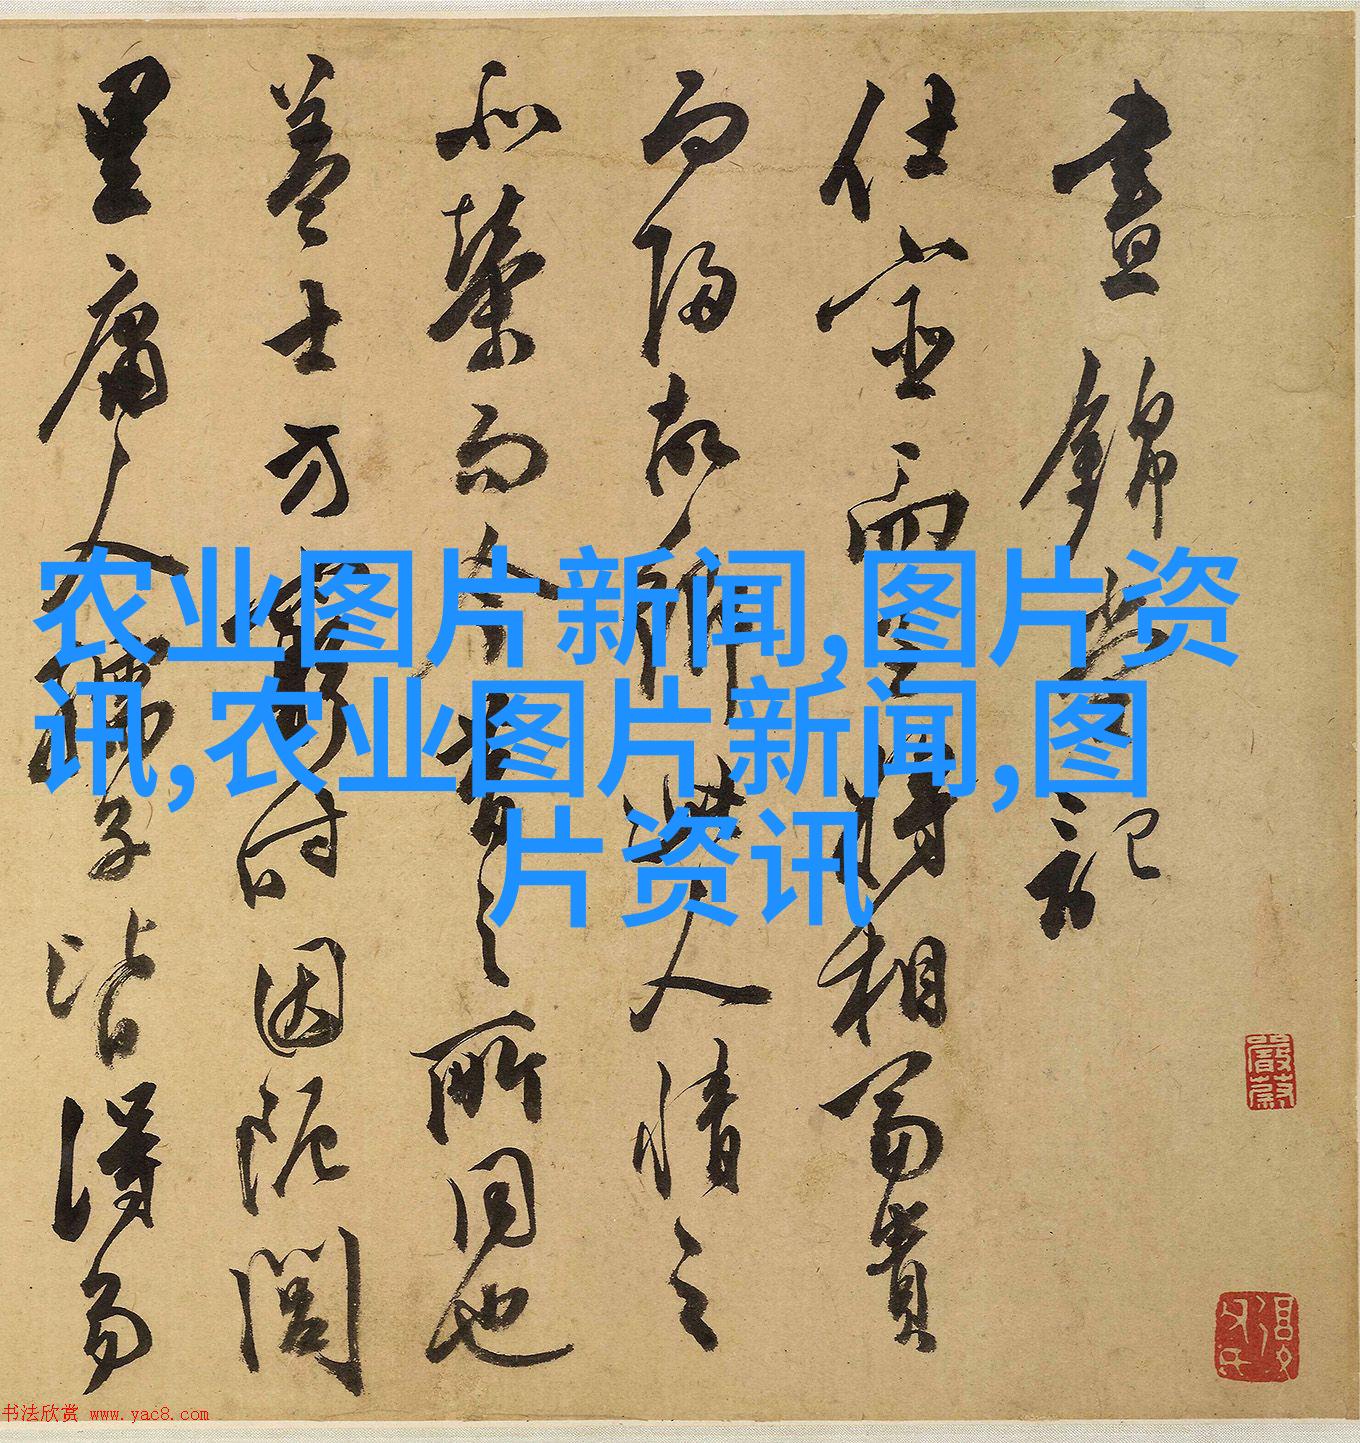 晝錦堂記
仕宦而至將相富貴
而歸故鄉此人情之
所榮而今昔之所同也
蓋士方窮時困阨閭
里庸人孺子皆得易
农业图片新闻,图片资
讯,农业图片新闻,图
片资讯
书法欣赏 www.yac8.com